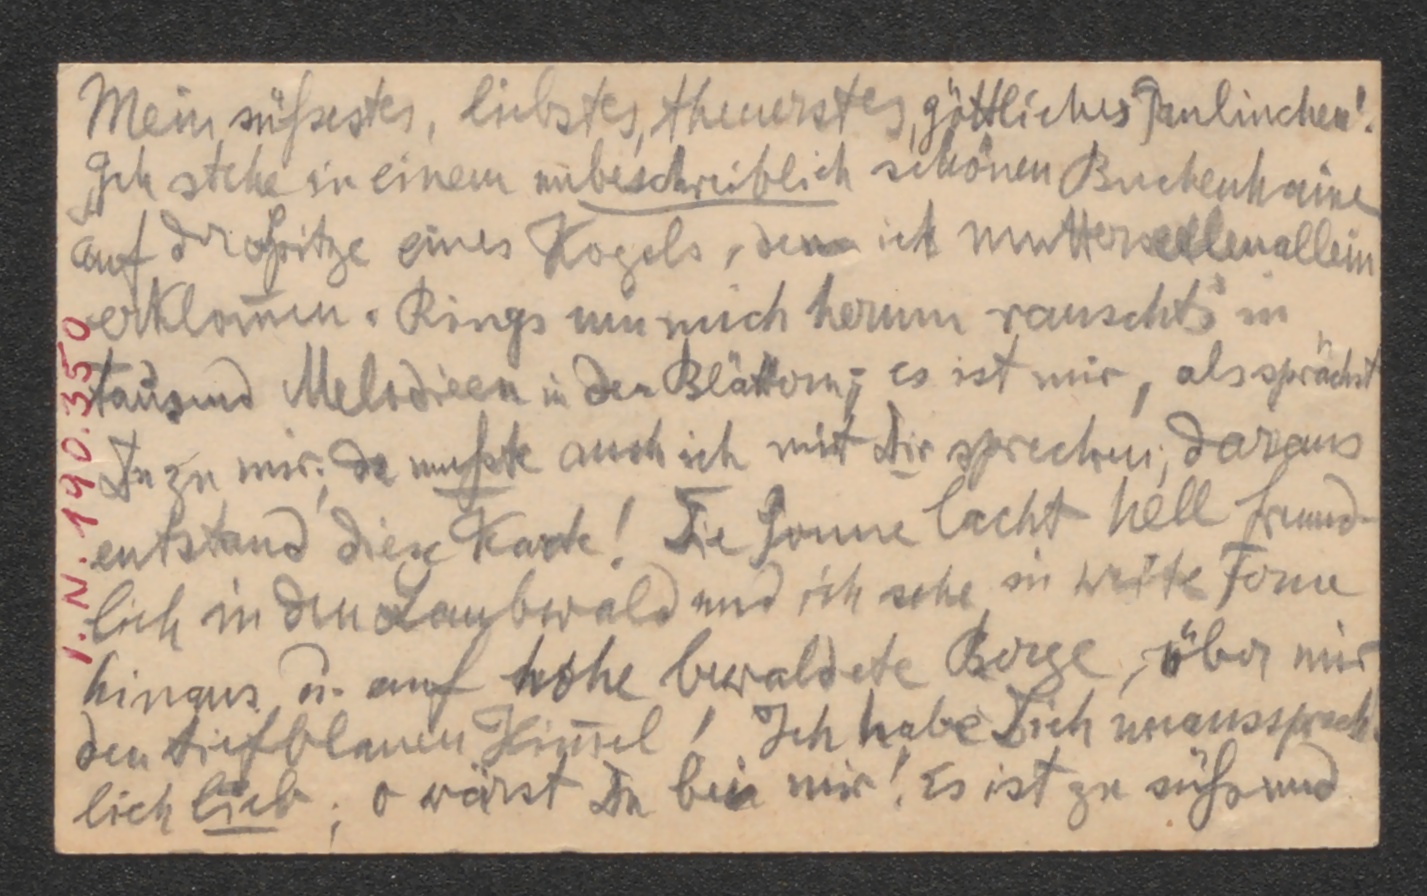 Mein süßestes, liebstes, theuerstes, göttliches Paulinchen!
Ich stehe in einem unbeschreiblich schönen Buchenhaine
auf der Spitze eines Kogels, den ich mutterseelenallein
erklom̄en. Rings um mich herum rauschts in
tausend Melodieen in den Blättern; es ist mir, als sprächst
Du zu mir; da mußte auch ich mit Dir sprechen; daraus
entstand diese Karte! Die Sonne lacht hell freund-
lich in den Laubwald und ich sehe in weite Ferne
hinaus u. auf hohe bewaldete Berge, über mir
den tiefblauen Him̄el! Ich habe Dich unaussprech-
lich lieb; o wärst Du bei mir! Es ist zu süß und
I.N. 190.350